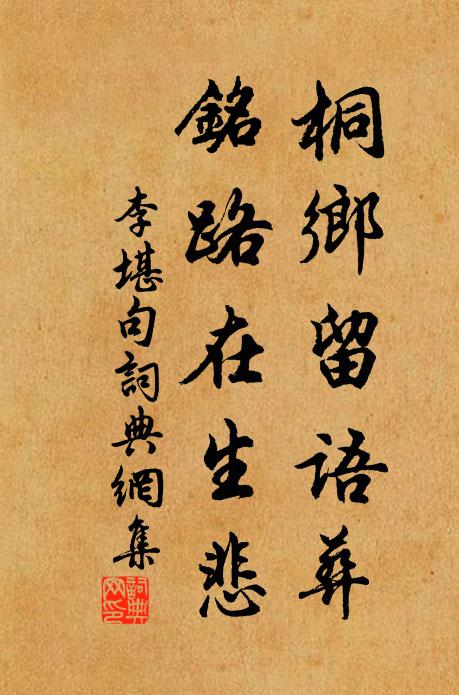 桐鄉留語葬
銘路在生悲
李堪句詞典網集
詞典網印